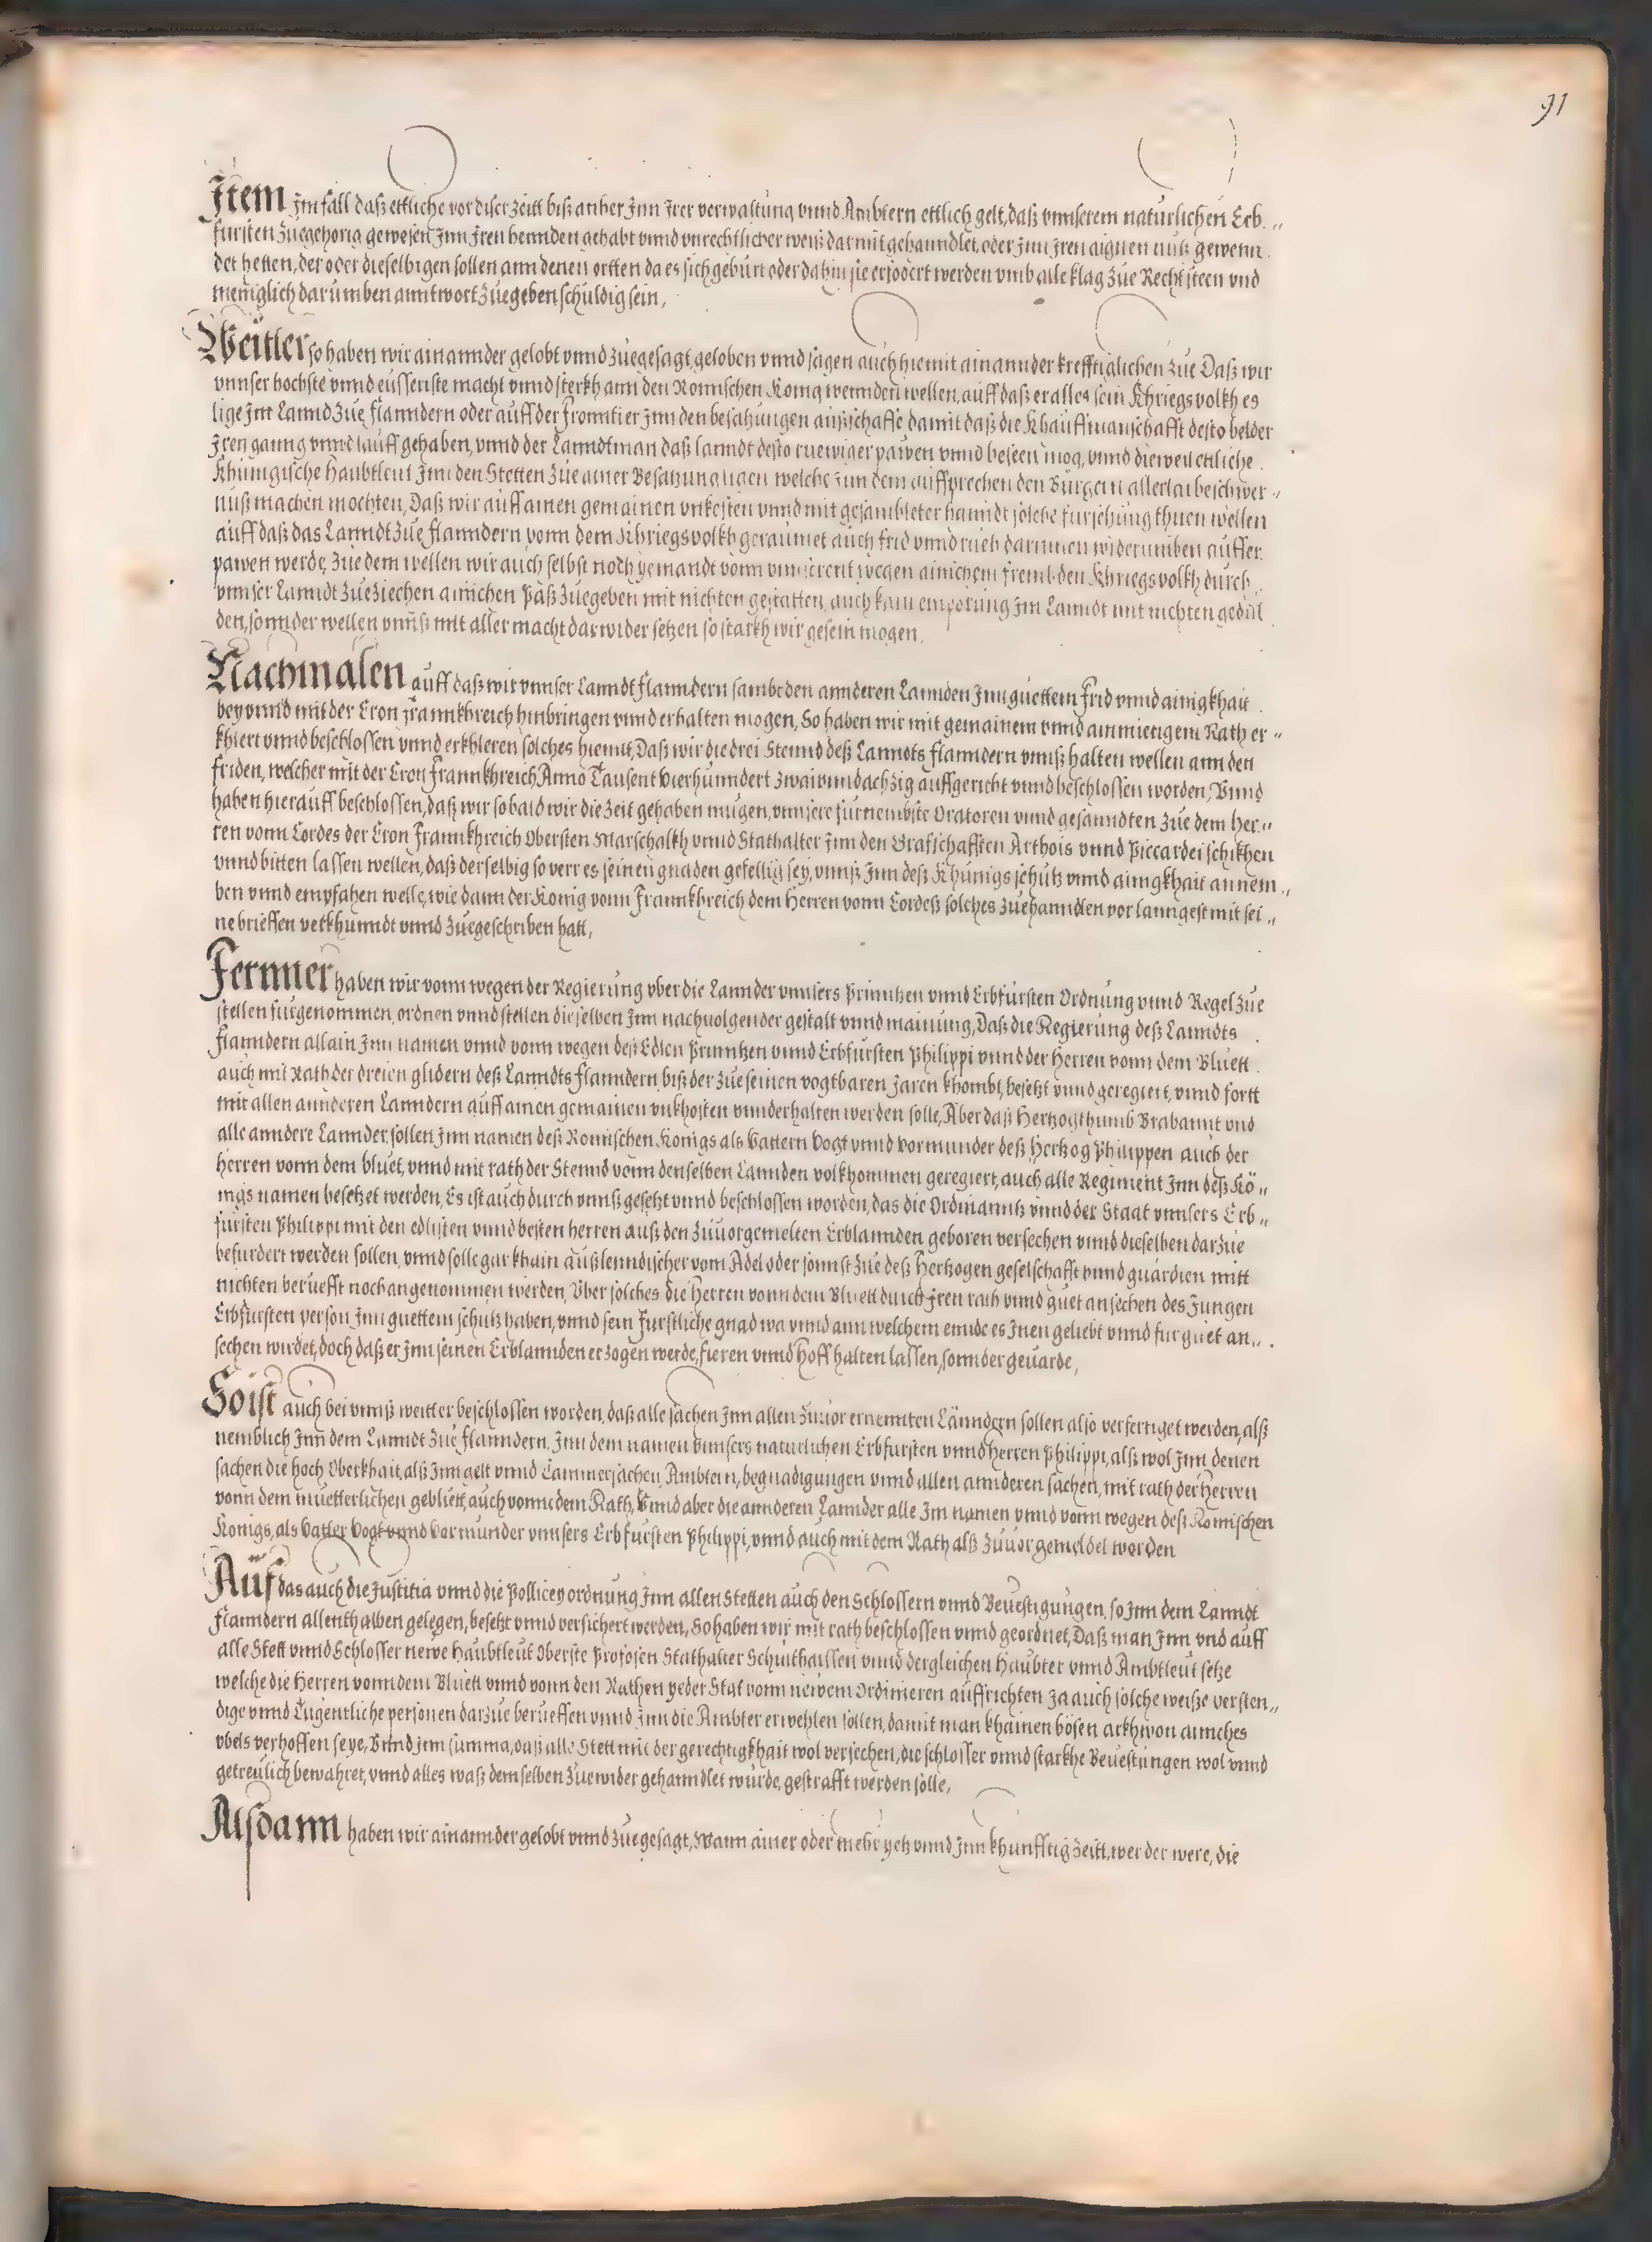 91
Item Im fall daß ettliche vor diser Zeitt biß anher Inn Irer verwaltung vnnd Ambtern ettlich gelt, daß vnnserem naturlichen Erb„
fursten Zuegehorig gewesen Inn Iren hennden gehabt vnnd vnrechtlicher weiß darmit gehanndlet, oder Inn Iren aignen nutz gewenn
det hetten, der oder dieselbigen sollen ann denen ortten da es sich geburt oder dahin sie erfodert werden vmb alle klag Zue Recht steen vnd
meniglich darumben anntwort Zuegeben schuldig sein,
Weitter so haben wir ainannder gelobt vnnd Zuegesagt, geloben vnnd sagen auch hiemit ainannder krefftiglichen Zue Daß wir
vnnser hochste vnnd eussenste macht vnnd sterkh ann den Romischen Konig wennden wellen, auff daß er alles sein Khriegsvolkh es
lige Im Lannd Zue flanndern oder auff der fronntier Inn den besatzungen außschaffe damit daß die Khauffmanschafft desto belder
Iren ganng vnnd lauff gehaben, vnnd der Lanndtman daß lanndt desto ruewiger pawen vnnd beseen mog, vnnd dieweil ettliche
Khunigische Haubtleut Inn den Stetten Zue ainer Besatzung ligen welche Inn dem auffprechen den Burgern allerlai beschwer„
nuß machen mochten, Daß wir auff ainen gemainen vnkosten vnnd mit gesambleter hanndt solche fursehung thuen wellen
auff daß das Lanndt Zue flanndern vonn dem Khriegsvolkh geraumet auch frid vnnd rueh darinnen widerumben auffer
pawen werde, Zue dem wellen wir auch selbst noch yemandt vonn vnnserent wegen ainichem frembden Khriegsvolkh durch
vnnser Lanndt Zueziechen ainichen Paß Zuegeben mit nichten gestatten, auch kain emporung Im Lanndt mit nichten gedul
den, sonnder wellen vnnß mit aller macht darwider setzen so starkh wir gesein mogen,
Nachmalen auff daß wir vnnser Lanndt Flanndern sambt den annderen Lannden Inn guettem Frid vnnd ainigkhait
bey vnnd mit der Cron Frannkhreich hinbringen vnnd erhalten mogen, So haben wir mit gemainem vnnd ainmietigem Rath er„
khiert vnnd beschlossen vnnd erkhleren solches hiemit, Daß wir die drei Stennd deß Lanndts Flanndern vnnß halten wellen ann den
friden, welcher mit der Cron Frannkhreich Anno Tausent Vierhunndert Zwaiunndachzig auffgericht vnnd beschlossen worden, Vnnd
haben hierauff beschlossen, daß wir so bald wir die Zeit gehaben mugen, vnnsere furnembste Oratoren vnnd gesanndten Zue dem Her„
ren vonn Cordes der Cron Frannkhreich Obersten Marschalkh vnnd Stathalter Inn den Grafschafften Arthois vnnd Piccardei schikhen
vnnd bitten lassen wellen, daß derselbig so verr es seinen gnaden gefellig sey, vnnß Inn deß Khunigs schutz vnnd ainigkhait annem„
ben vnnd empfahen welle, wie dann der Konig vonn Frannkhreich dem Herren vonn Cordeß solches Zuehanndlen vor lanngest mit sei„
ne brieffen verkhunndt vnnd Zuegeschriben hatt,
Fernner haben wir vonn wegen der Regierung vber die Lannder vnnsers Prinntzen vnnd Erbfursten Ordnung vnnd Regel Zue
stellen furgenommen, ordnen vnnd stellen dieselben Inn nachuolgender gestalt vnnd mainung, Daß die Regierung deß Lanndts
Flanndern allain Inn namen vnnd vonn wegen deß Edlen Prinntzen vnnd Erbfursten Philippi vnnd der Herren vonn dem Bluett
auch mit Rath der dreien glidern deß Lanndts Flanndern, biß der Zue seinen vogtbaren Jaren khombt, besetzt vnnd geregiert, vnnd fortt
mit allen annderen Lanndern auff ainen gemainen vnkhosten vnnderhalten werden solle, Aber daß Hertzogthumb Brabannt vnd
alle anndere Lannder, sollen Inn namen deß Romischen Konigs als Vattern Vogt vnnd Vormunder deß Hertzog Philippen auch der
Herren vonn dem bluet, vnnd mit rath der Stennd vonn denselben Lannden volkhommen geregiert, auch alle Regiment Inn deß Kö„
nigs namen besetzet werden, Es ist auch durch vnnß gesetzt vnnd beschlossen worden, das die Ordinanntz vnnd der Staat vnnsers Erb„
fursten Philippi mit den edlisten vnnd besten herren auß den Zuuorgemelten Erblannden geboren versechen vnnd dieselben darzue
befurdert werden sollen, vnnd solle gar khain außlenndischer vom Adel oder sonnst Zue deß Hertzogen geselschafft vnnd guardien mitt
nichten beruefft noch angenommen werden, Vber solches die Herren vonn dem Bluett durch Iren rath vnnd guet ansechen des Jungen
Erbfursten person Inn guettem schutz haben, vnnd sein Furstliche gnad wa vnnd ann welchem ennde es Inen geliebt vnnd fur guet an„
sechen wirdet, doch daß er Inn seinen Erblannden erzogen werde, fieren vnnd Hoff halten lassen, sonnder geuarde,
So ist auch bei vnnß weitter beschlossen worden, daß alle sachen Inn allen Zuuor ernennten Länndern sollen also verfertiget werden, alß
nemblich Inn dem Lanndt Zue flanndern, Inn dem namen vnnsers naturlichen Erbfursten vnnd Herren Philippi, alß wol Inn denen
sachen die hoch Oberkhait, alß Inn gelt vnnd Cammersachen, Ambtern, begnadigungen vnnd allen annderen sachen, mit rath der Herren
vonn dem muetterlichen gebluett, auch vonn dem Rath, Vnnd aber die annderen Lannder alle Im namen vnnd vonn wegen deß Romischen
Konigs, als Vatter Vogt vnnd Vormunder vnnsers Erbfursten Philippi, vnnd auch mit dem Rath alß Zuuor gemeldet worden
Auf das auch die Justitia vnnd die Pollicey ordnung Inn allen Stetten auch den Schlossern vnnd Beuestigungen, so Inn dem Lanndt
Flanndern allenthalben gelegen, besetzt vnnd versichert werden, So haben wir mit rath beschlossen vnnd geordnet, Daß man Inn vnd auff
alle Stett vnnd Schlosser newe Haubtleut Oberste Profosen Stathalter Schulthaissen vnnd dergleichen Haubter vnnd Ambtleut setze
welche die Herren vonn dem Bluett vnnd vonn den Rathen yeder Stat vonn newem Ordinieren auffrichten Ja auch solche weiße versten„
dige vnnd Tugentliche personen darzue berueffen vnnd Inn die Ambter erwehlen sollen, damit man khainen bösen arkhwon ainiches
vbels verhoffen seye, Vnnd Inn summa, daß alle Stett mit der gerechtigkhait wol versechen, die schlosser vnnd starkhe Beuestungen wol vnnd
getreulich bewahret, vnnd alles waß demselben Zuewider gehanndlet wurde, gestrafft werden solle,
Alsdann haben wir ainannder gelobt vnnd Zuegesagt, Wann ainer oder mehr yetz vnnd Inn khunfftig Zeitt, wer der were, die